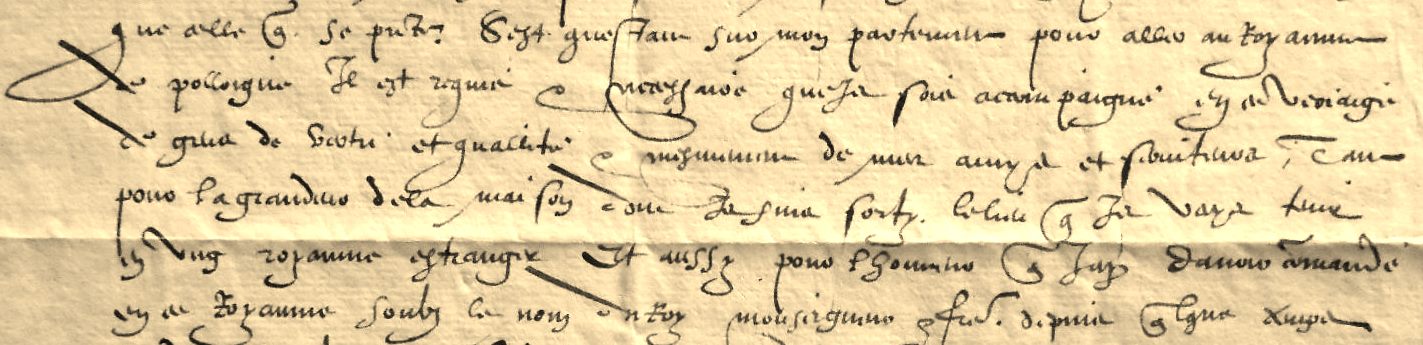 que celle q̃ se pñte. Cest questant sur mon partement pour aller au Royaume
de polloigne Il est requis & necessaire que Je sois acompaigné en ce veoiaige
de gens de vertu et quallité & mesmement de mes amys et serviteurs, Tant
pour la grandeur de la maison dont Je suis sorty. le lieu q̃ Je vays tenir
en ung royaume estranger Et aussy pour lhonneur q̃ Jay davoir cõmandé
en ce Royaume soubz le nom du Roy monseigneur & frere. depuis q̃lques